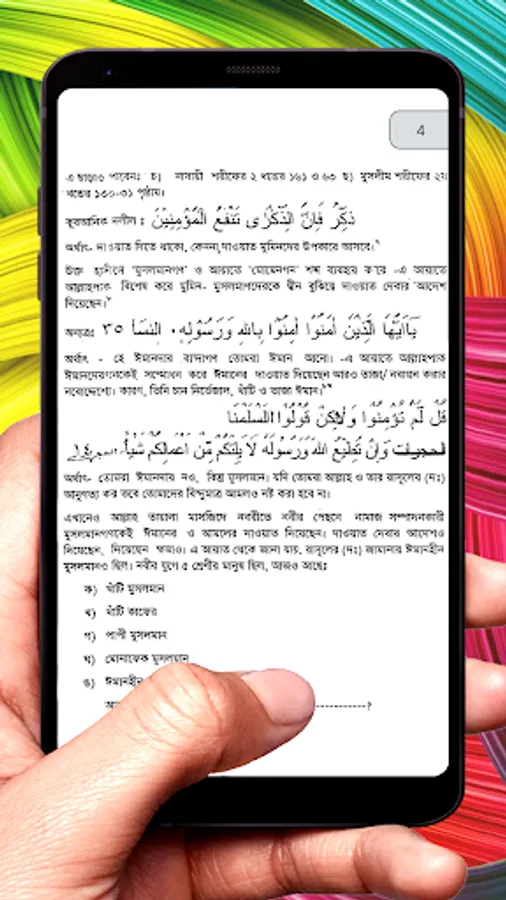 4
এ ছাড়াও পাবেনঃ চ) নাসায়ী শরীফের ২ খন্ডের ১৬১ ও ৬৩ ছ) মুসলীম শরীফের ২য়
খন্ডের ১৩০-৩১ পৃষ্ঠায়।
কুরআনিক দলীল : ذَكِّرْ فَاِنَّ الذِّكْرٰى تَنْفَعُ الْمُؤْمِنِيْنَ
অর্থাৎ- দাওয়াত দিতে থাকো, কেননা দাওয়াত মুমিনদের উপকারে আসবে।
উক্ত হাদীসে 'মুসলমানগণ' ও আয়াতে 'মোমেনগণ' শব্দ ব্যবহার করে -এ আয়াতে
আল্লাহপাক বিশেষ করে মুমিন- মুসলমানদেরকে দ্বীন বুঝিয়ে দাওয়াত দেবার আদেশ
দিয়েছেন।
অন্যত্রঃ يٰاَيُّهَا الَّذِيْنَ اٰمَنُوْا اٰمِنُوْا بِاللهِ وَرَسُوْلِهٖ۰ النِسَاْ ٣٥
অর্থাৎ - হে ঈমানদার বান্দাগণ তোমরা ঈমান আনো। -এ আয়াতে আল্লাহপাক
ঈমানদেরগনকেই সম্মোধন করে ঈমানের দাওয়াত দিয়েছেন আরও তাজা/ নবায়ন করার
নবোদ্দেশ্যে। কারণ, তিনি চান নির্ভেজাল, খাঁটি ও তাজা ঈমান।
قُلْ لَمْ تُؤْمِنُوْا وَلٰكِنْ قُوْلُوْا اَسْلَمْنَا
وَاِنْ تُطِيْعُ اللهَ وَرَسُوْلَهٗ لَا يَلِتْكُمْ مِّنْ اَعْمَالِكُمْ شَيْأً الحجرات ١٤
অর্থাৎ- তোমরা ঈমানদার নও, কিন্তু মুসলমান। যদি তোমরা আল্লাহ ও তার রাসুলের (দঃ)
আনুগত্য কর তবে তোমাদের বিন্দুমাত্র আমলও নষ্ট করা হবে না।
এখানেও আল্লাহ তায়ালা মাসজিদে নববীতে নবীর পেছনে নামাজ সম্পাদনকারী
মুসলমানগণকেই ঈমানের ও আমলের দাওয়াত দিয়েছেন। দাওয়াত দেবার আদেশও
দিয়েছেন, দিয়েছেন ক্ষমাও। এ আয়াত থেকে জানা যায়, রাসুলের (দঃ) জামানার ঈমানহীন
মুসলমানও ছিল। নবীর যুগে ৫ শ্রেণীর মানুষ ছিল, আজও আছেঃ
ক) খাঁটি মুসলমান
খ) খাঁটি কাফের
গ) পাপী মুসলমান
ঘ) মোনাফেক মুসলমান
ঙ) ঈমানহীন
------------?